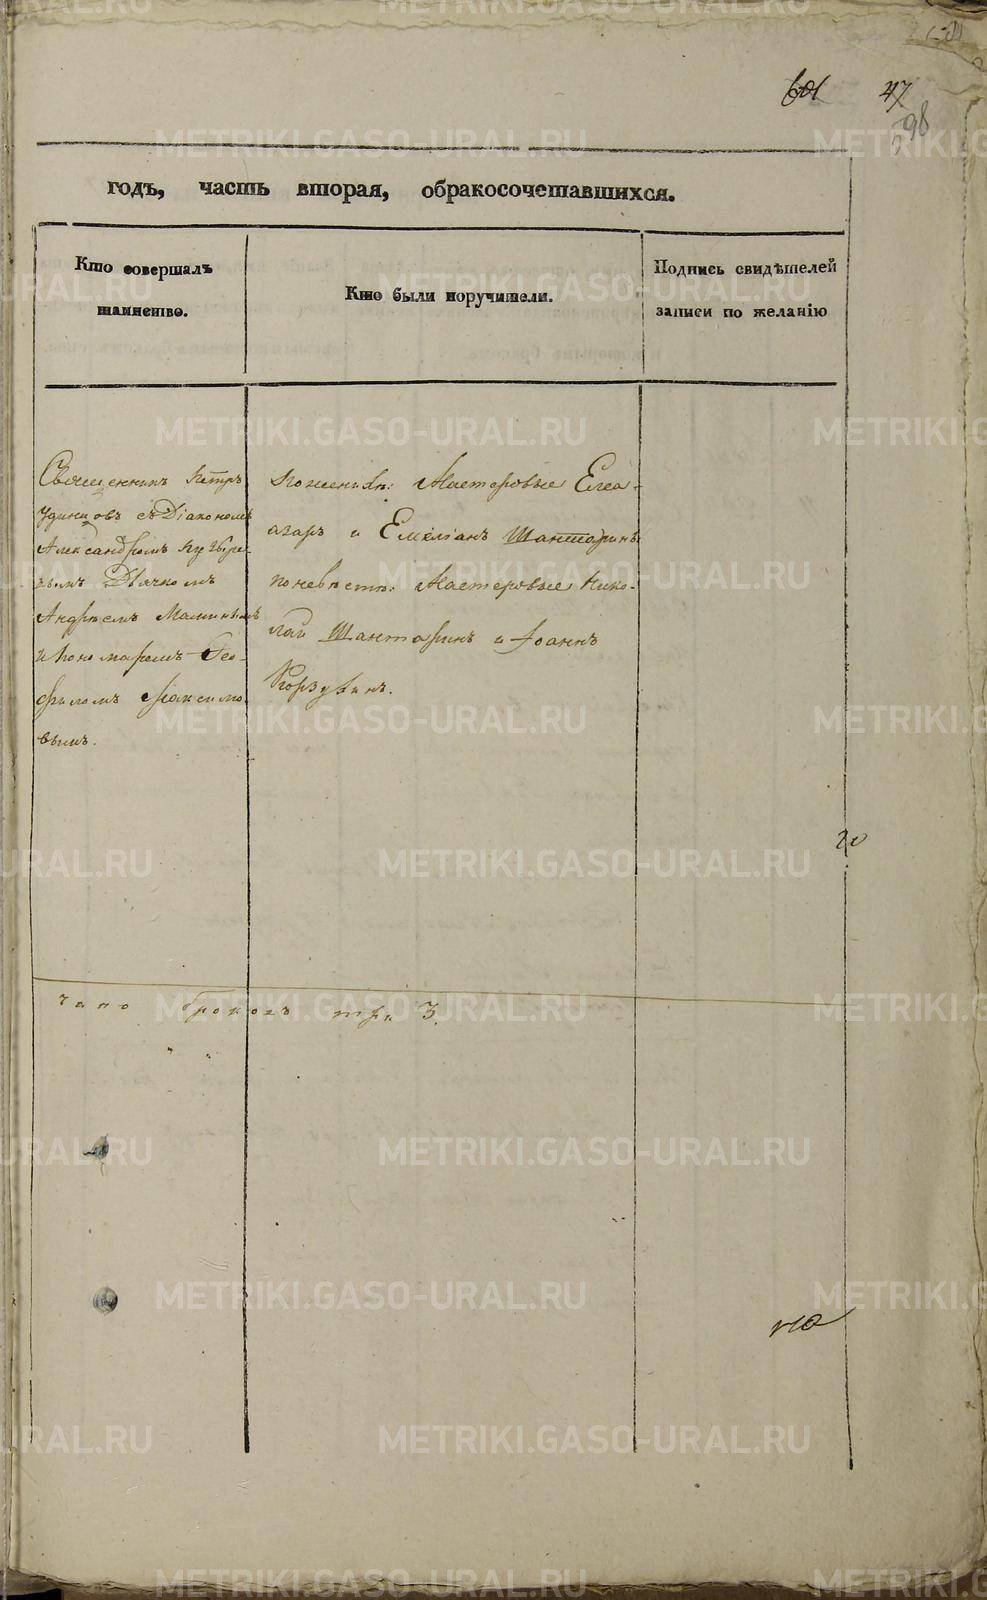 47
98
годъ, часть вторая, обракосочетавшихся.
Кто совершалъ
таинство.
Кто были поручители.
Подпись свидѣтелей
записи по желанію
Священникъ Петръ
Удинцовъ съ Діакономъ
Александромъ
Дьячкомъ
Андреемъ Маминымъ
и Пономаремъ Фео-
филомъ Максимо-
вымъ.
по женихѣ: Мастеровые Елеа-
заръ и Емеліанъ Шантаринъ
по невѣстѣ: Мастеровые Нико-
лай Шантаринъ и Іоаннъ
Корзухинъ.
20
браковъ три 3.
METRIKI.GASO-URAL.RU